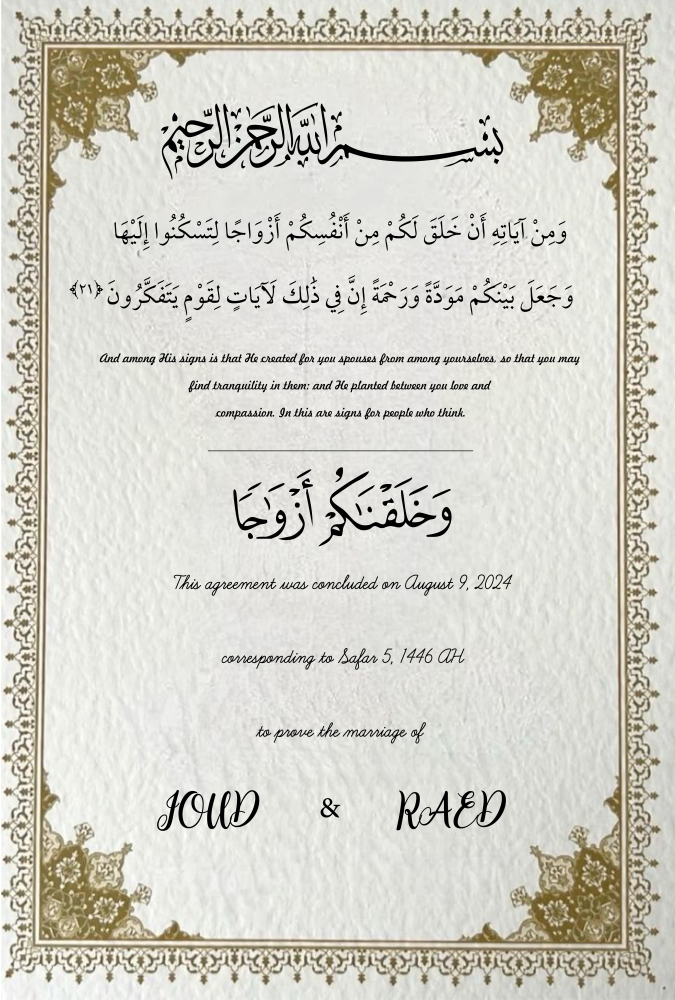 بسم الله الرحمن الرحيم
وَمِنْ آيَاتِهِ أَنْ خَلَقَ لَكُمْ مِنْ أَنْفُسِكُمْ أَزْوَاجًا لِتَسْكُنُوا إِلَيْهَا
وَجَعَلَ بَيْنَكُمْ مَوَدَّةً وَرَحْمَةً إِنَّ فِي ذَٰلِكَ لَآيَاتٍ لِقَوْمٍ يَتَفَكَّرُونَ ﴿٢١﴾
And among His signs is that He created for you spouses from among yourselves, so that you may
find tranquility in them; and He planted between you love and
compassion. In this are signs for people who think.
وَخَلَقْنَاكُمْ أَزْوَاجًا
This agreement was concluded on August 9, 2024
corresponding to Safar 5, 1446 AH
to prove the marriage of
JOUD & RAED